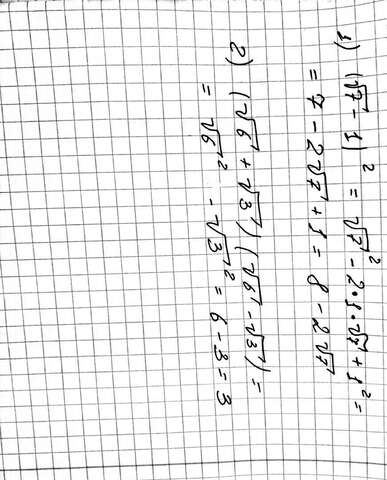 1) (√7 - 1)² = √7² - 2·1·√7 + 1² =
= 7 - 2√7 + 1 = 8 - 2√7
2) (√6 + √3)(√6 - √3) =
= √6² - √3² = 6 - 3 = 3